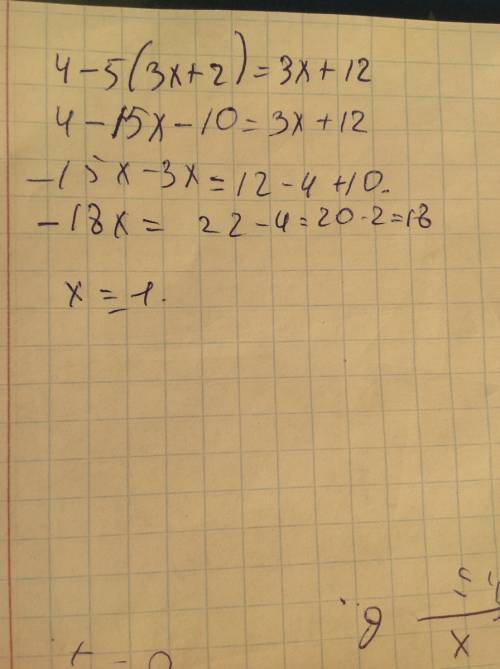 4-5(3x+2)=3x+12
4-15x-10=3x+12
-15x-3x=12-4+10.
-18x= 22-4=20-2=18
x=-1.